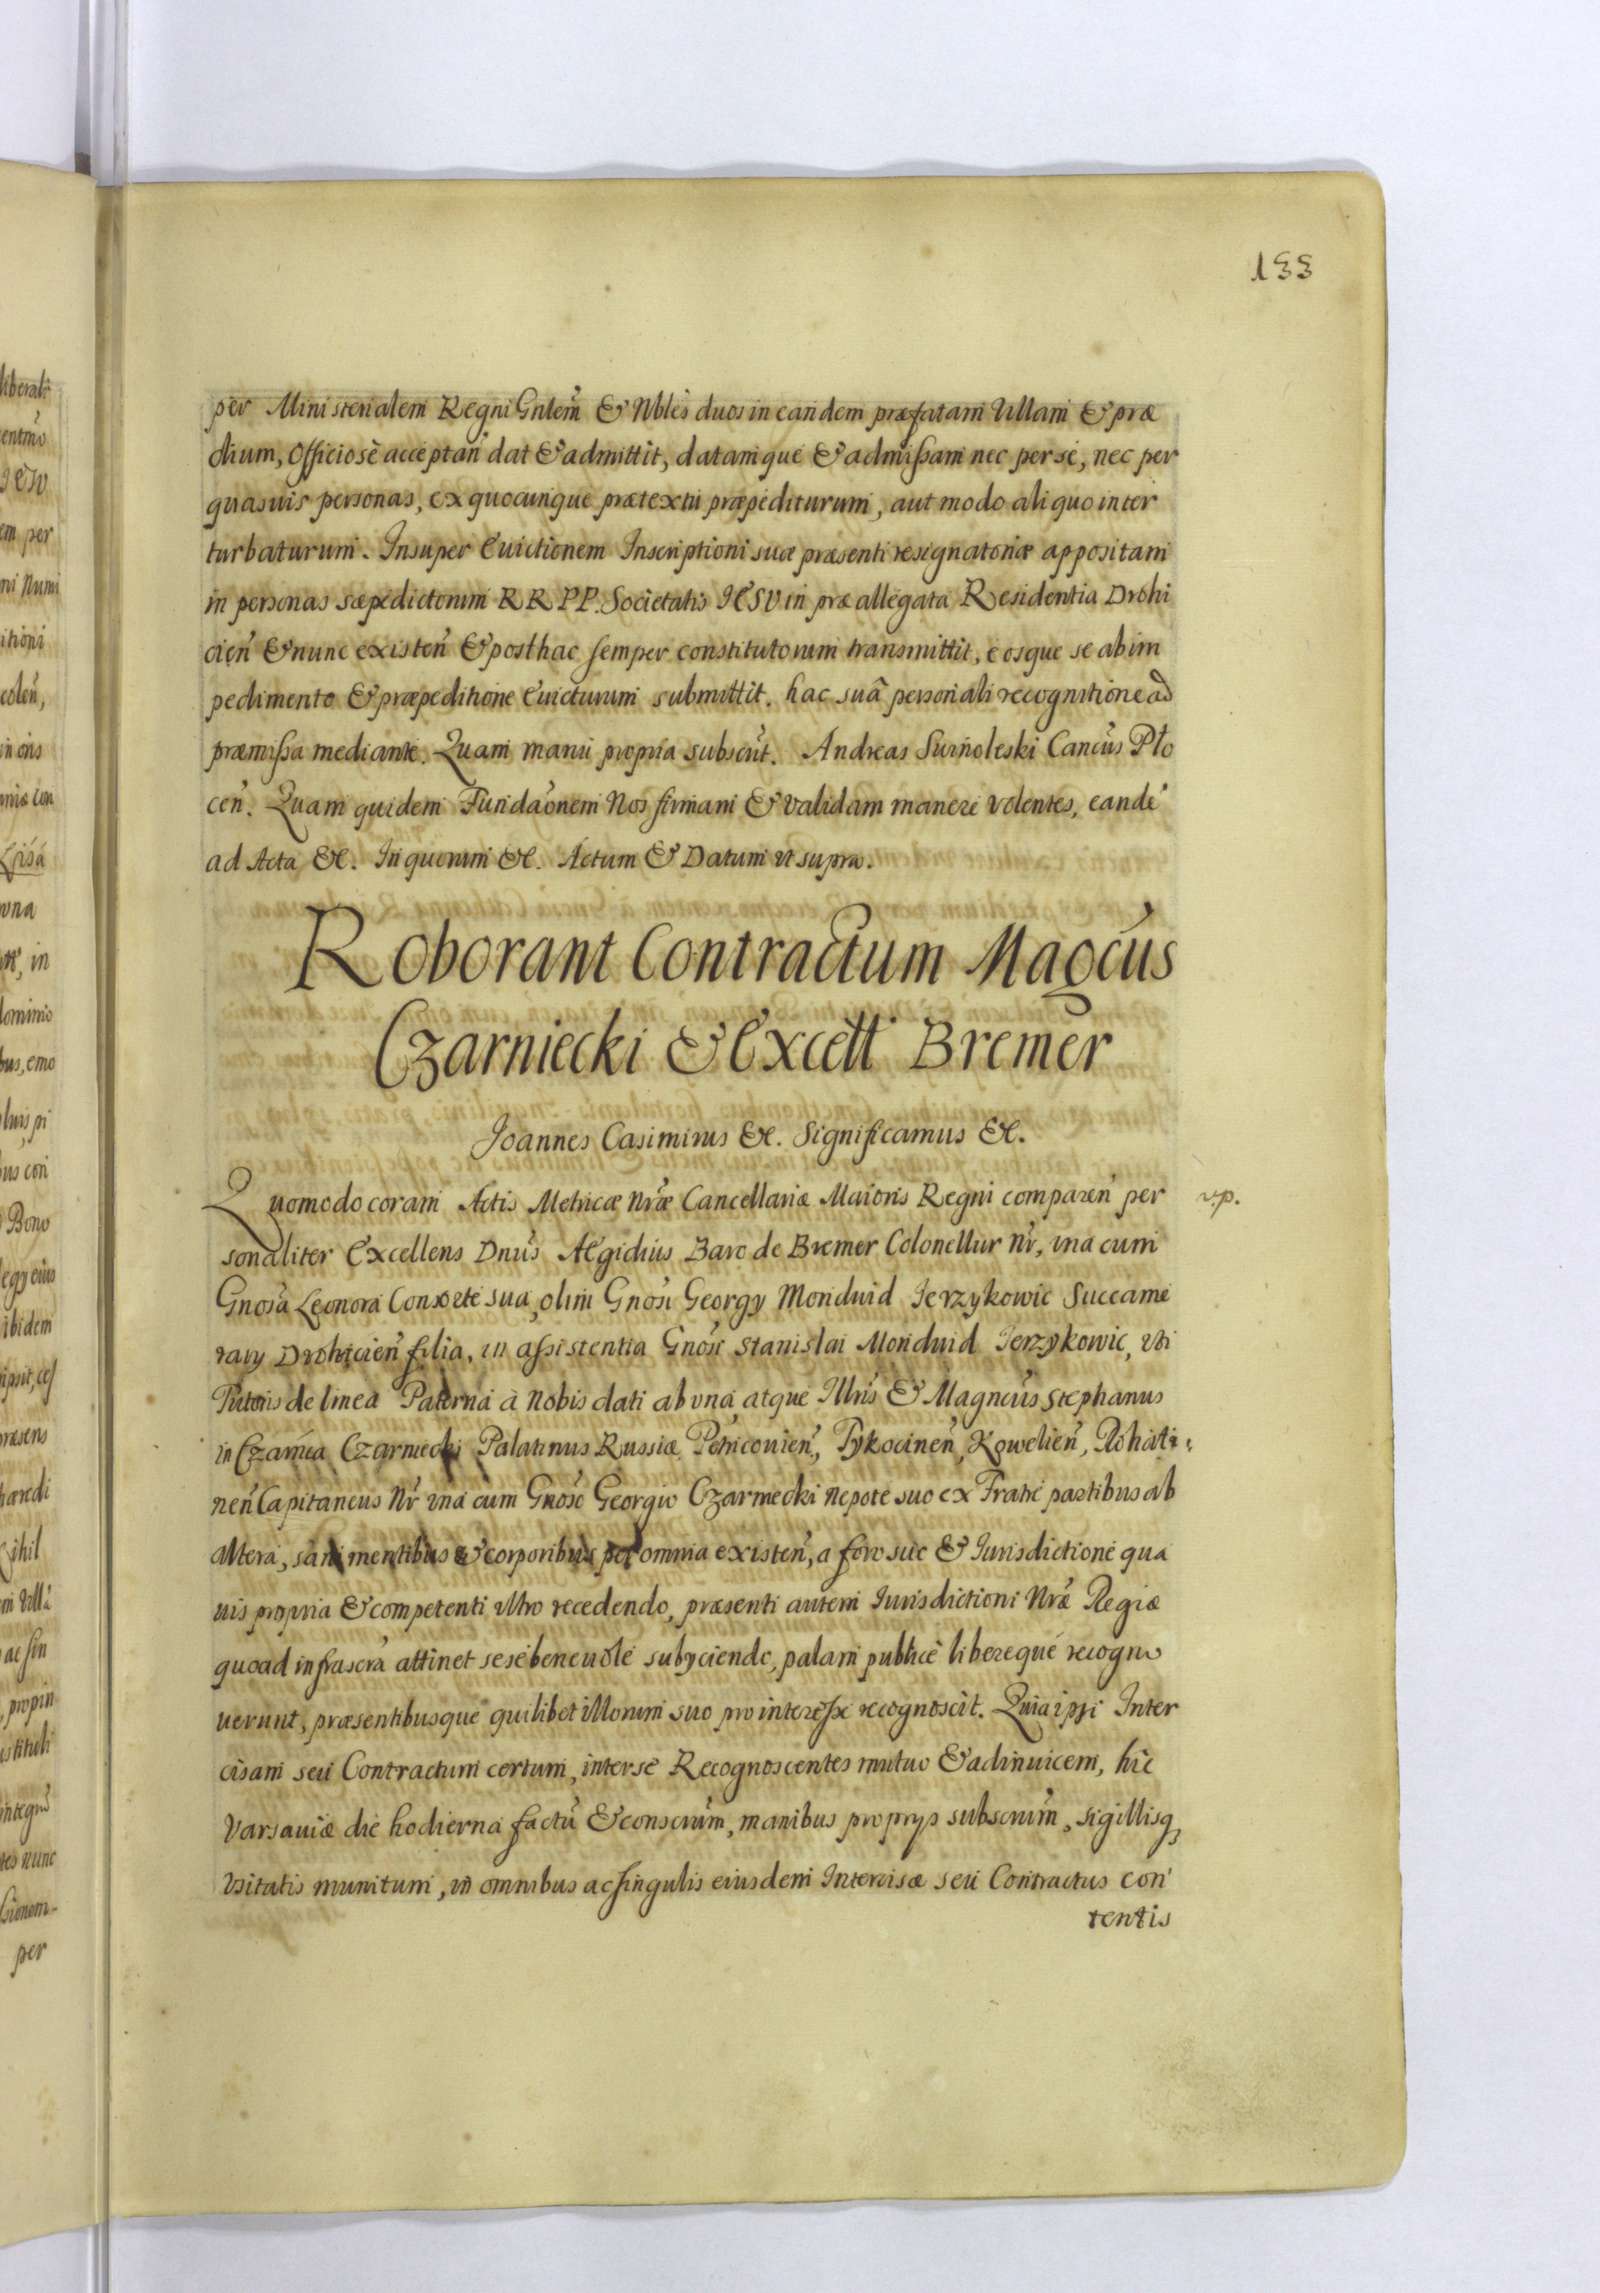 133
per Ministerialem Regni Gnlem̃ & Nbles duos in eandem præfatam Villam & præ
dium, Officiosè acceptañ dat & admittit, datamque & admissam nec per se, nec per
quasuis personas, ex quocunque prætextu præpediturum, aut modo aliquo inter
turbaturum. Insuper Euictionem Inscriptioni suæ præsenti resignatoriæ appositam
in personas sæpedictorum RR PP. Societatis IESV in præallegata Residentia Drohi
cieñ & nunc existeñ & posthac semper constitutorum transmittit, eosque se ab im
pedimento & præpeditione Euicturum submittit. hac suâ personali recognitione ad
præmissa mediante. Quam manu propria subscr̃t. Andreas Smoleski Cancũs Plo
ceñ. Quam quidem Fundaõnem Nos firmam & validam manere volentes, eandẽ
ad Acta &c. In quorum &c. Actum & Datum vt supra.
Roborant Contractum Magcũs
Czarniecki & Excell Bremer
Joannes Casimirus &c. Significamus &c.
Quomodo coram Actis Metricæ Nr̃æ Cancellariæ Maioris Regni compareñ per
r.p.
sonaliter Excellens Dnũs Ægidius Baro de Bremer Colonellur Nr̃, vna cum
Gnosa Leonora Consorte sua, olim Gnosi Georgy Monduid Jerzykowic Succame
rary Drohicieñ filia, in assistentia Gnosi Stanislai Monduid Jerzykowic, vti
Tutoris de linea Paterna à Nobis dati ab vna atque Illrĩs & Magncũs Stephanus
in Czarnca Czarniecki Palatinus Russiæ Petricouieñ, Tykocineñ, Kowelieñ, Rohati
neñ Capitaneus Nr̃ vna cum Gnoso Georgio Czarniecki Nepote suo ex Fratre partibus ab
altera, sani mentibus & corporibus per omnia existeñ, a foro suo & Iurisdictione qua
uis propria & competenti vltro recedendo, præsenti autem Iurisdictioni Nr̃æ Regiæ
quoad infrascr̃a attinet sese beneuole subyciendo, palam publice libereque recogno
uerunt, præsentibusque quilibet illorum suo pro interesse recognoscit. Quia ipsi Inter
cisam seu Contractum certum, inter se Recognoscentes mutuo & adinuicem, hic
Varsauiæ die hodierna factũ & conscrĩm, manibus proprys subscrĩm, sigillisq
vsitatis munitum, in omnibus ac singulis eiusdem Intercisæ seu Contractus con
tentis